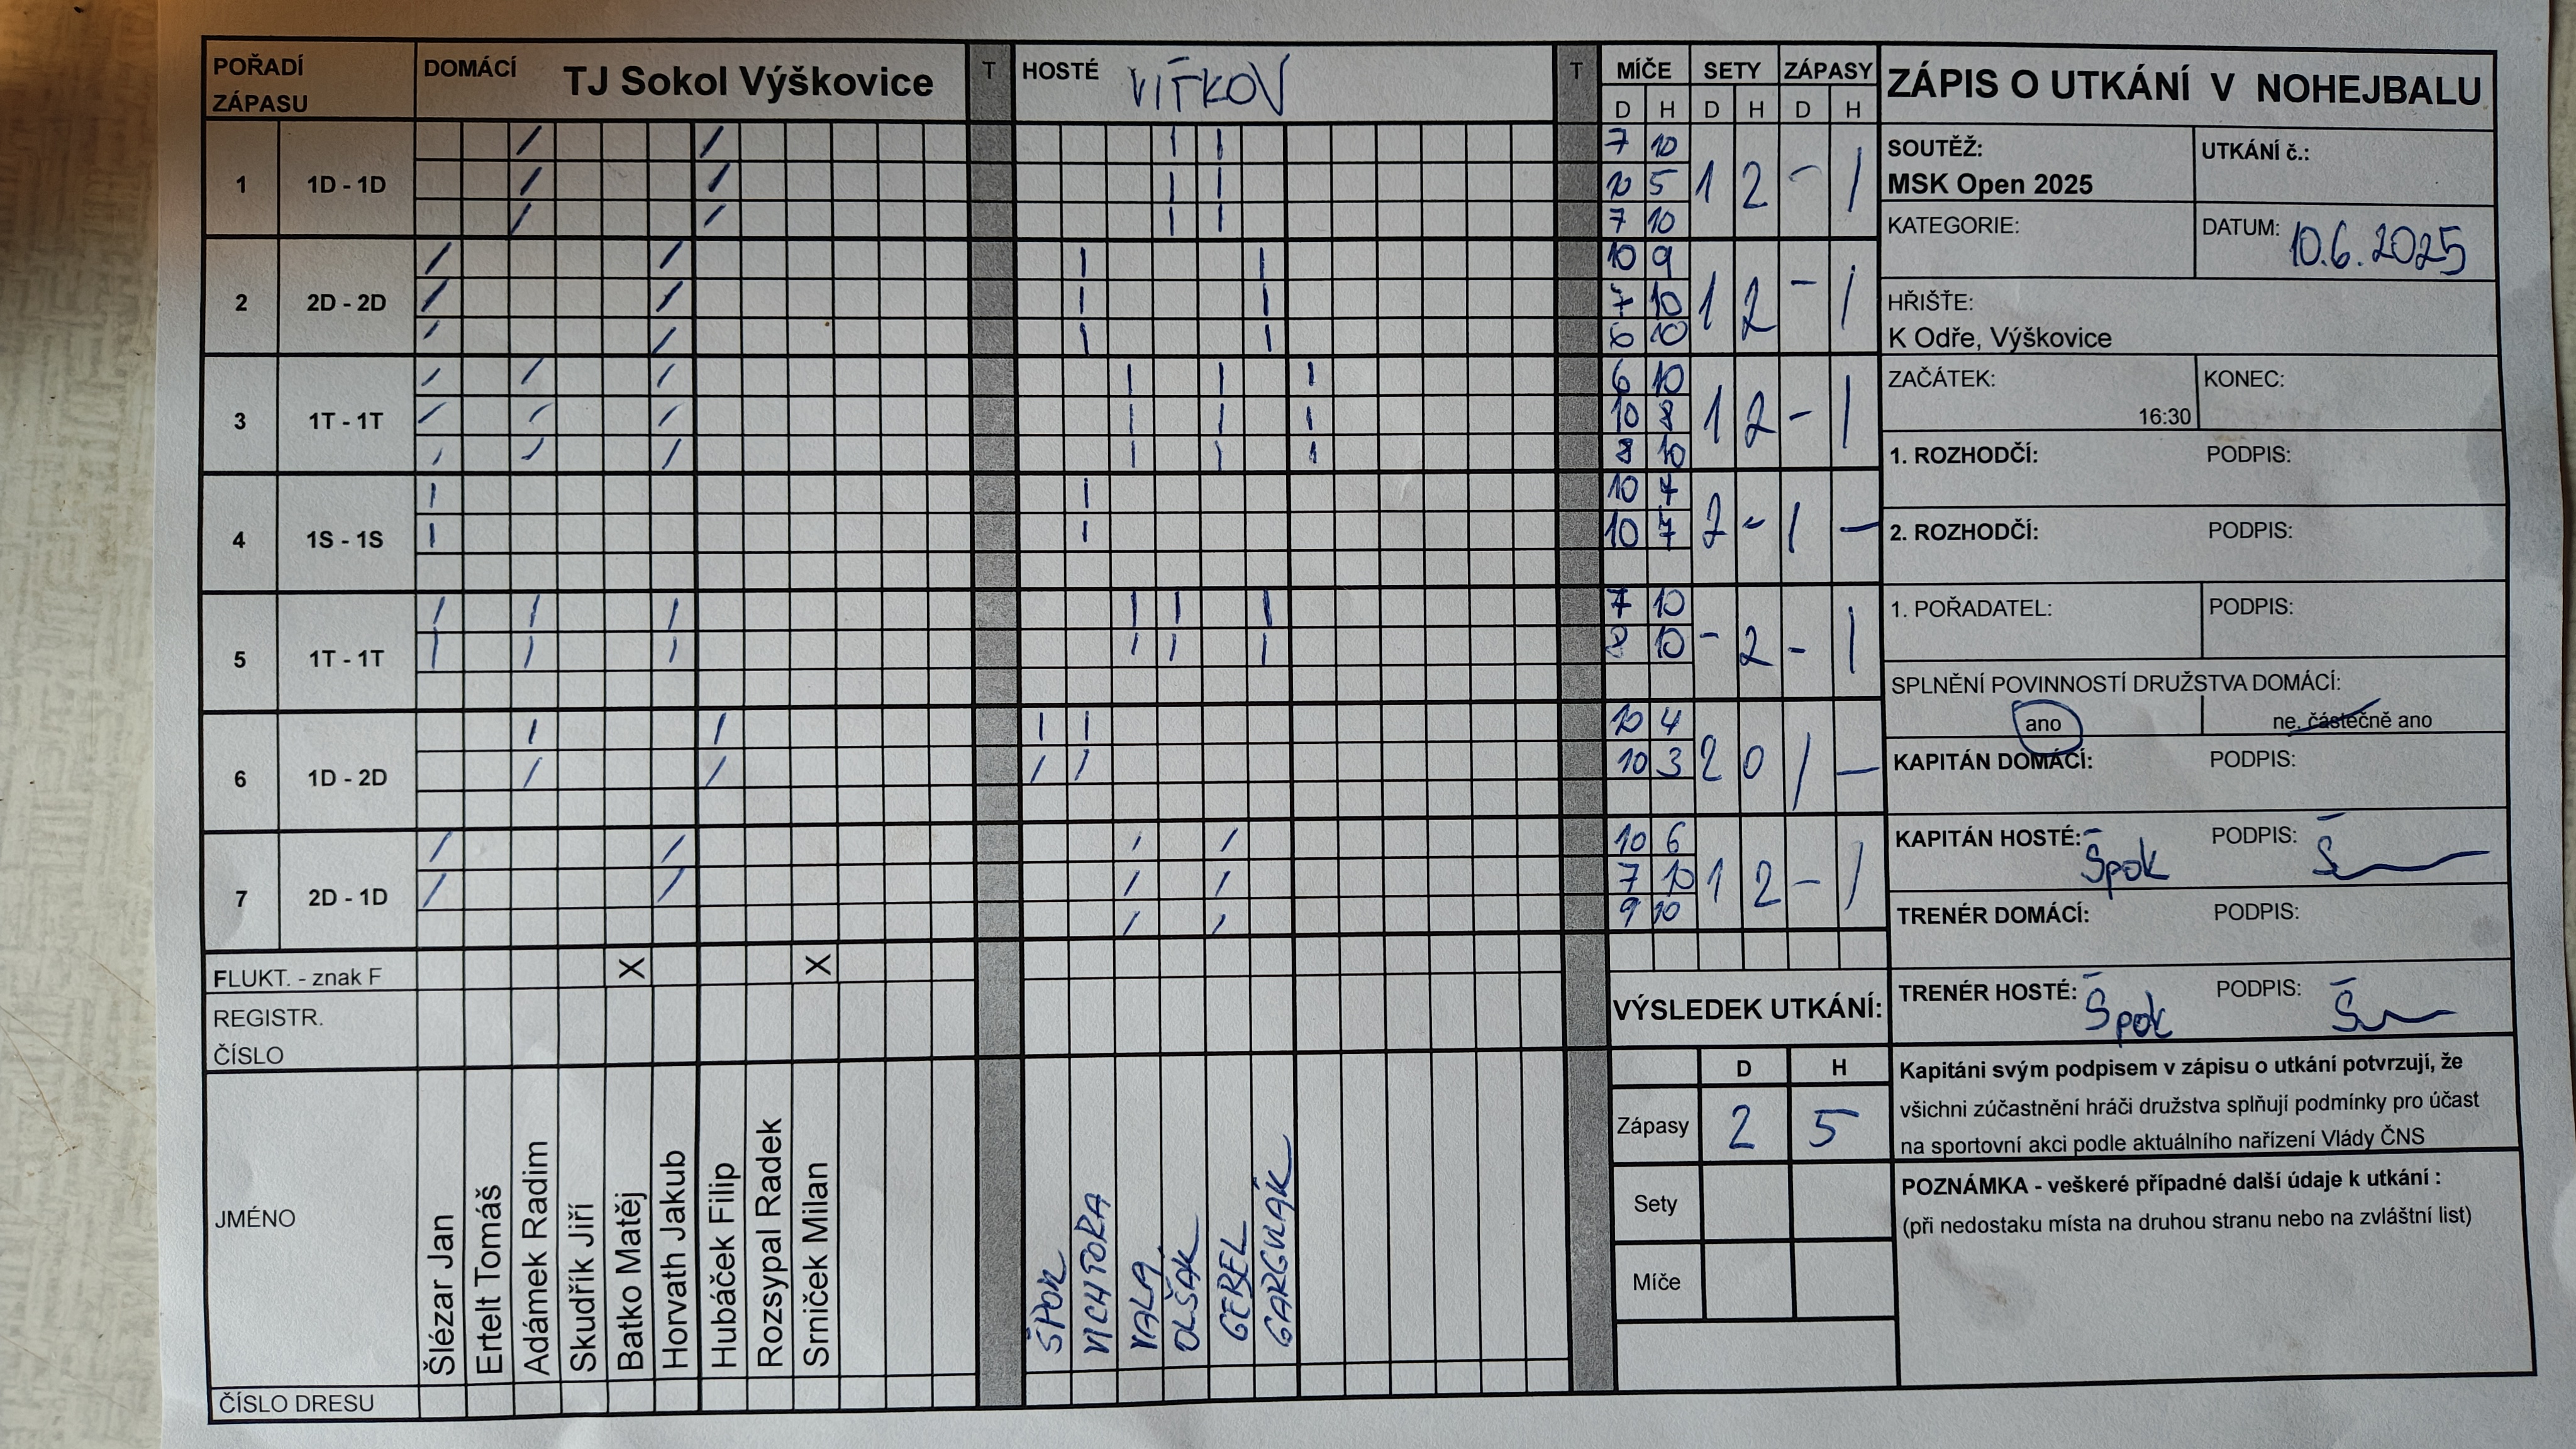 POŘADÍ ZÁPASU DOMÁCÍ TJ Sokol Výškovice T HOSTÉ VÍTKOV T MÍČE SETY ZÁPASY
D H D H D H
1 1D - 1D / / | | 7 10 1 2 - 1
/ / | | 10 5
/ / | | 7 10
2 2D - 2D / / | | 10 9 1 2 - 1
/ / | | 7 10
/ / | | 6 10
3 1T - 1T / / / | | | 6 10 1 2 - 1
/ / / | | | 10 8
/ / / | | | 8 10
4 1S - 1S | | 10 7 2 - 1 -
| | 10 7
5 1T - 1T / / / | | | 7 10 - 2 - 1
/ / / | | | 8 10
6 1D - 2D / / | | 10 4 2 0 1 -
/ / / / 10 3
7 2D - 1D / / / / 10 6 1 2 - 1
/ / / / 7 10
/ / 9 10
FLUKT. - znak F X X
REGISTR. ČÍSLO
JMÉNO
Šlézar Jan
Ertelt Tomáš
Adámek Radim
Skudřík Jiří
Batko Matěj
Horvath Jakub
Hubáček Filip
Rozsypal Radek
Srniček Milan
ŠPOK
VICHTORA
VALA
OLŠÁK
GEBEL
GARGULÁK
ČÍSLO DRESU
VÝSLEDEK UTKÁNÍ:
D H
Zápasy 2 5
Sety
Míče
ZÁPIS O UTKÁNÍ V NOHEJBALU
SOUTĚŽ: UTKÁNÍ č.:
MSK Open 2025
KATEGORIE: DATUM: 10.6.2025
HŘIŠTĚ:
K Odře, Výškovice
ZAČÁTEK: KONEC:
16:30
1. ROZHODČÍ: PODPIS:
2. ROZHODČÍ: PODPIS:
1. POŘADATEL: PODPIS:
SPLNĚNÍ POVINNOSTÍ DRUŽSTVA DOMÁCÍ:
ano ne, částečně ano
KAPITÁN DOMÁCÍ: PODPIS:
KAPITÁN HOSTÉ: Špok PODPIS:
TRENÉR DOMÁCÍ: PODPIS:
TRENÉR HOSTÉ: Špok PODPIS:
Kapitáni svým podpisem v zápisu o utkání potvrzují, že
všichni zúčastnění hráči družstva splňují podmínky pro účast
na sportovní akci podle aktuálního nařízení Vlády ČNS
POZNÁMKA - veškeré případné další údaje k utkání :
(při nedostaku místa na druhou stranu nebo na zvláštní list)